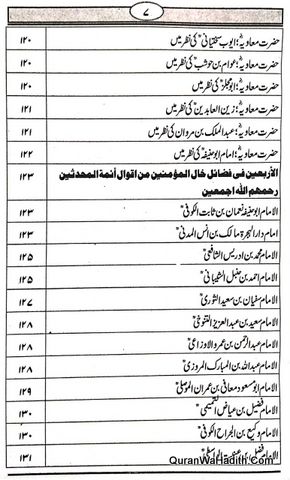 ۷
حضرت معاویہؓ؛ ایوب سختیانیؒ کی نظر میں ۱۲۰
حضرت معاویہؓ؛ عوام بن حوشبؒ کی نظر میں ۱۲۰
حضرت معاویہؓ؛ ابو مجلزؒ کی نظر میں ۱۲۰
حضرت معاویہؓ؛ زین العابدینؒ کی نظر میں ۱۲۱
حضرت معاویہؓ؛ عبد الملک بن مروان کی نظر میں ۱۲۱
حضرت معاویہؓ؛ امام ابو حنیفہؒ کی نظر میں ۱۲۲
الأربعین فی فضائل خال المؤمنین من اقوال أئمة المحدثین رحمهم الله اجمعین ۱۲۳
الامام ابو حنیفہ نعمان بن ثابت الکوفیؒ ۱۲۳
امام دار الہجرۃ مالک بن انس المدنیؒ ۱۲۳
الامام محمد بن ادریس الشافعیؒ ۱۲۵
الامام احمد بن حنبل الشیبانیؒ ۱۲۵
الامام سفیان بن سعید الثوریؒ ۱۲۷
الامام سعید بن عبد العزیز التنوخیؒ ۱۲۸
الامام عبد الرحمٰن بن عمرو الاوزاعیؒ ۱۲۸
الامام عبد اللہ بن المبارک المروزیؒ ۱۲۸
الامام ابو مسعود معافی بن عمران الموصلیؒ ۱۲۹
الامام فضیل بن عیاض التمیمیؒ ۱۳۰
الامام وکیع بن الجراح الکوفیؒ ۱۳۰
الامام ۱۳۱
QuranWaHadith.Com